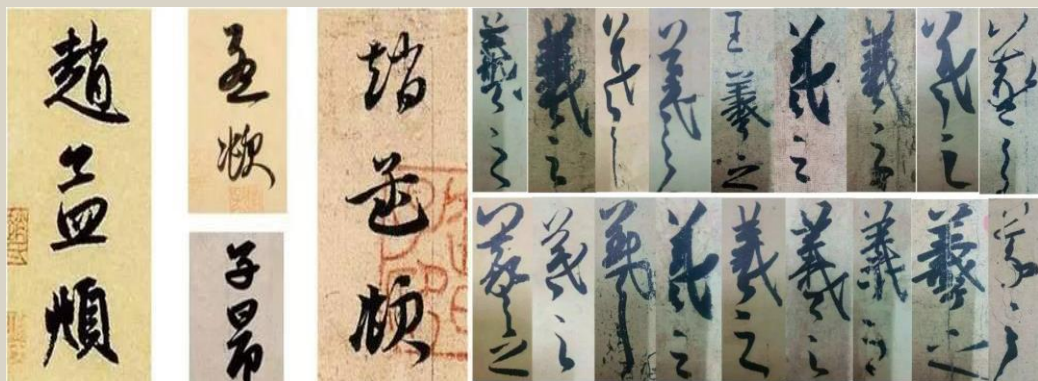 趙孟頫
孟頫
子昂
趙孟頫
羲之
羲之
羲之
羲之
王羲之
羲之
羲之
羲之
羲之
羲之
羲之
羲之
羲之
羲之
羲之
羲之
羲之
羲之